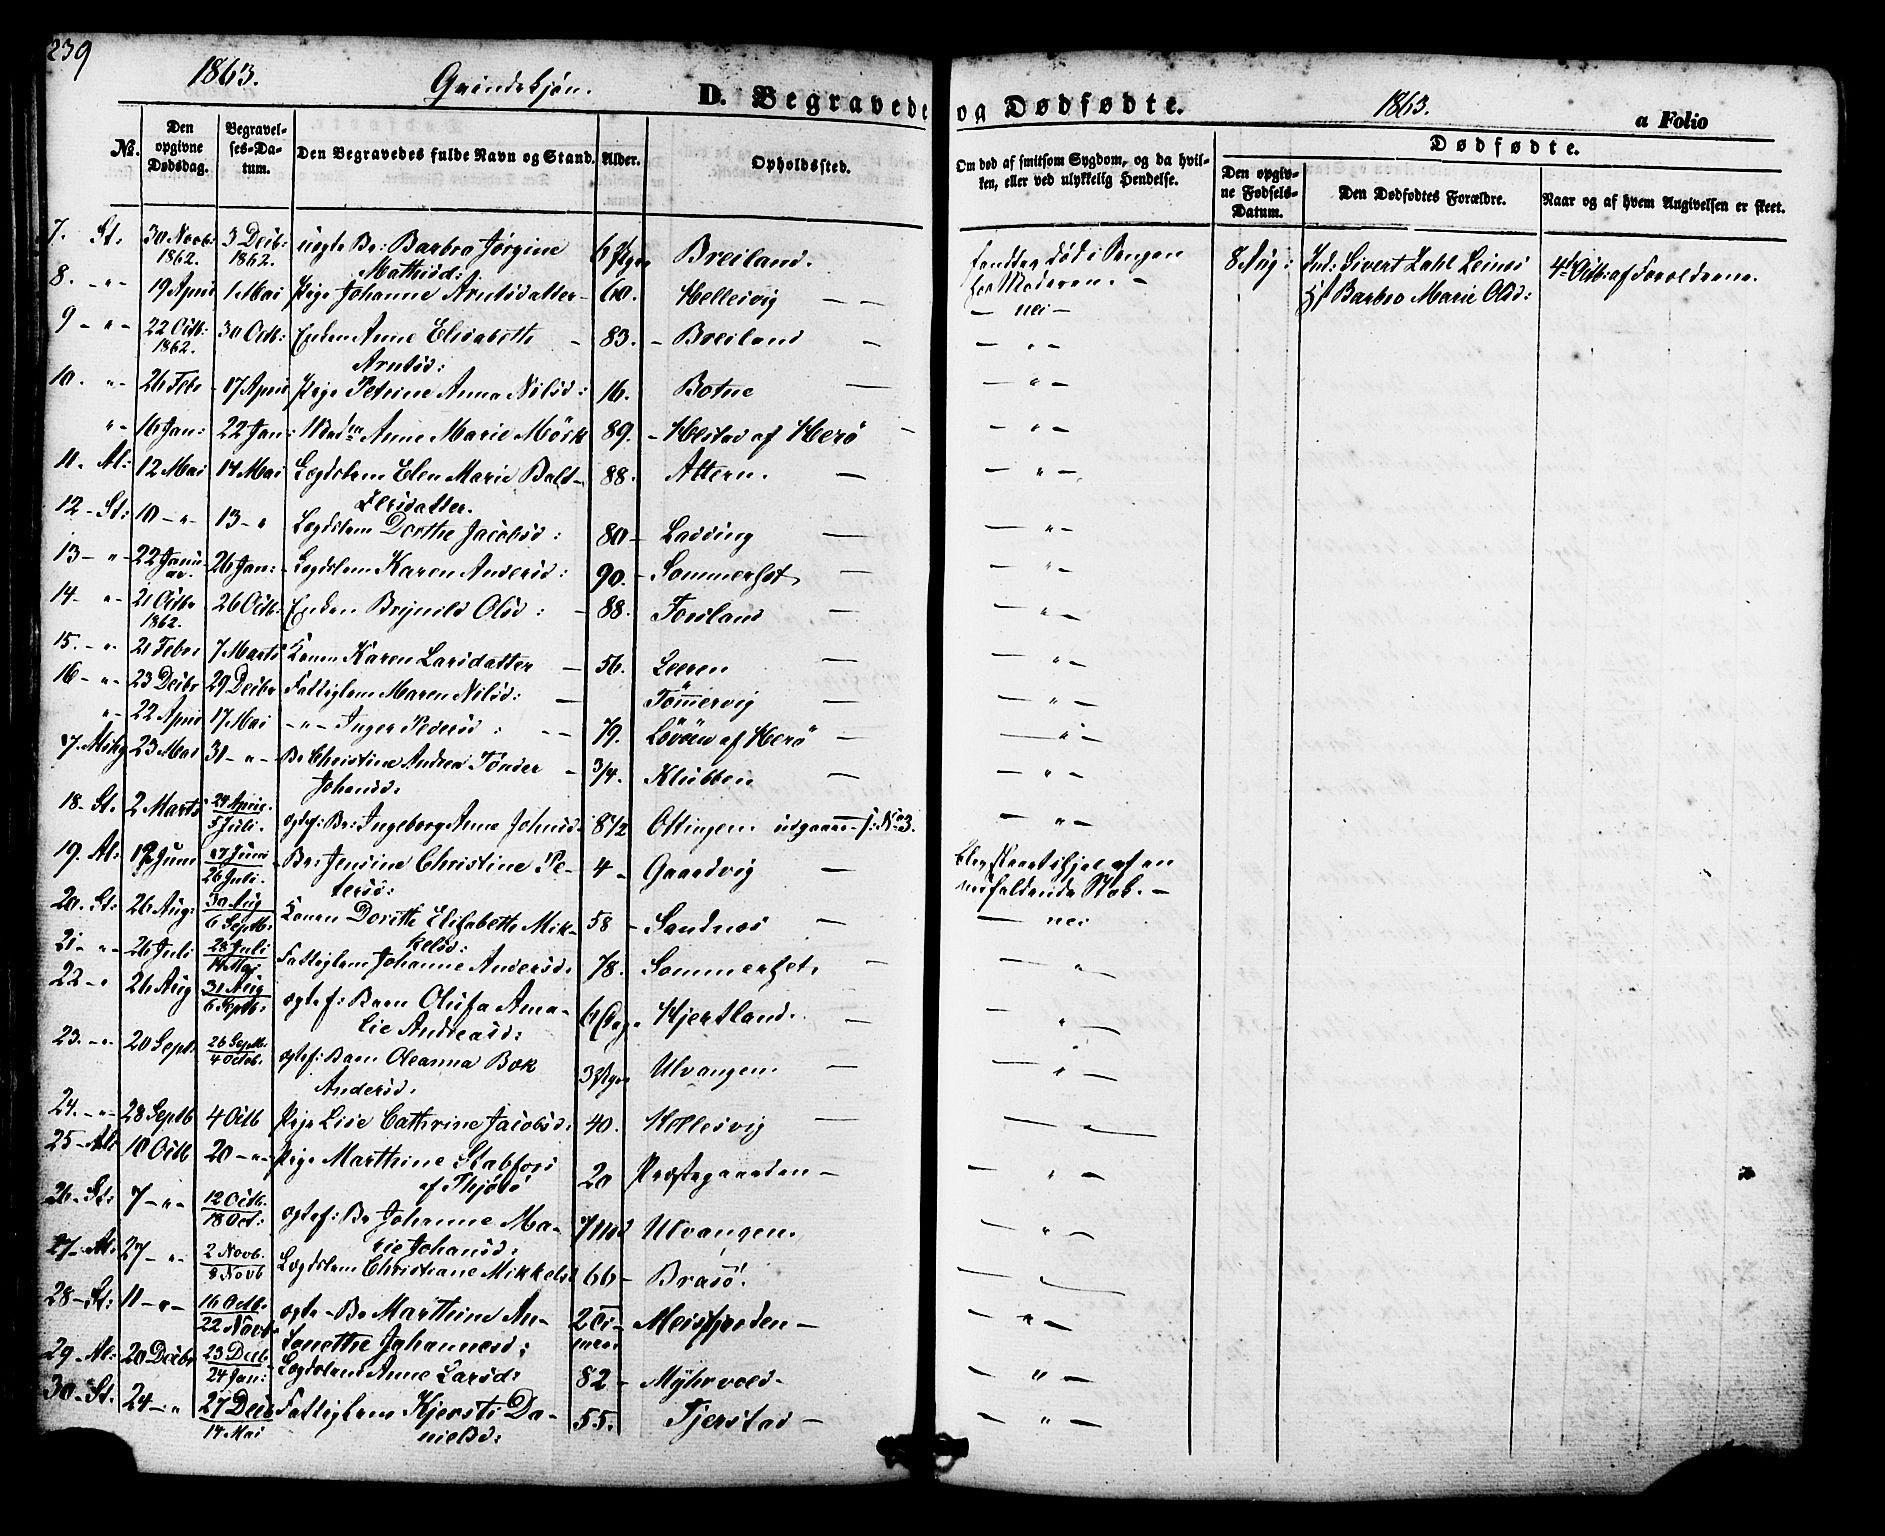 239
1863. Qvindekjøn. D. Begravede og Dødfødte. 1863. a Folio
No. Den opgivne Dødsdag. Begravelses-Datum. Den Begravedes fulde Navn og Stand. Alder. Opholdssted. Om død af smitsom Sygdom, og da hvilken, eller ved ulykkelig Hendelse. Dødfødte.
Den opgivne Fødsels-Datum. Den Dødfødtes Forældre. Naar og af hvem Angivelsen er skeet.
7. St: 30 Novb: 1862. 3 Decb: 1862. uegte Br: Barbra Jørgine Mathisd: Breiland. fandtes død i Sengen hos Moderen. 8 Aug: Ind: Sivert Zahl Leines Barbro Marie Olsd: 4de Octb: af Forældrene.
8. - " - 19 April 1 Mai Pige Johanne Arntsdatter 60. Hellesvig - nei -
9 - " - 22 Octb: 1862. 30 Octb: Enken Anne Elisabeth Arntsd: 83. - Breiland - " -
10. - " - 26 Febr 17 April Pige Petrine Anna Nilsd: 16. Botne - " -
" - 16 Jan: 22 Jan: Anne Marie Mörk 89. - Helstad af Herö - " -
11. Al: 12 Mai 14 Mai Lægdslem Elen Marie Baltzersdatter. 88. Altern. - " -
12 - St: 10 - " - 13 - " Lægdslem Dorthe Jacobsd: 80 - Ladding - " -
13 - " - 22 Januar. 26 Jan: Lægdslem Karen Andersd: 90. - Sommerset - " -
14 - " - 21 Octbr 1862. 26 Octb. Enken Brynild Olsd: 88. Forsland - " -
15. - " - 21 Febr 7 Marts Konen Karen Larsdatter 56. Leeren - " -
16 - " - 23 Decbr 29 Decbr Fattiglem Maren Nilsd: Tömmervig - " -
" - 22 April 17 Mai - " - Inger Pedersd: 79. Lövöen af Herö - " -
23 Mai 31 - " - Br Christine Andrea Tönder Johansd: 3/4. Klubben - " -
18. St. 2 Marts 5 Juli. egtef: Br: Ingeborg Anna Johnsd. 8 1/2 Ottingen udgaar - No 3. - " -
19. Al: 17 Juni 26 Juli. Br: Jensine Christine Petersd: 4 - Gaardvig blev slaaet ihjel af en nedfaldende Stok. -
20. St: 26 Aug: 30 Aug 6 Septb: Konen Dorthe Elisabeth Mikkelsd: 58 - Sandnes nei
21 - " - 26 Juli 28 Juli Fattiglem Johanne Andersd. 78. Sommerset. - " -
22 - " 26 Aug 31 Aug 6 Septb: egtef: Barn Olufa Amalie Andreasd: Hjertland. - " -
23. - " - 20 Sept: 26 Septb: 4 Octob. egtef: Barn Oleanna Bok Andersd. Ulvangen. - " -
24. - " - 28 Septb 4 Octb Pige Lise Cathrine Jacobsd. 40. Hellesvig - " -
25 - Al: 10 Octb 20 - " - Pige Marthine Stabfors af Thjötö 20 Præstegaarden - - " -
26 - St: 7 - " - 12 Octb. 18 Oct: egtef: Br Johanne Malie Johansd: 7 Md Ulvangen. - " -
27 - Al: 27 - " - 2 Novb. 8 Novb Lægdslem Christiane Mikkelsd 66 - Brasö. - " -
28 - St: 11 - " - 16 Octb: 22 Novb: egte - Br Marthine Ansenethe Johannesd: Meisfjorden - - " -
29 - Al: 20 Decbr 23 Decb. 24 Jan: Lægdslem Anne Larsd: 82 - Myhrvold - - " -
30 - St: 24 - " 27 Decb 14 Mai Fattiglem Kjersti Danielsd: 55. Tjerstad - - " -